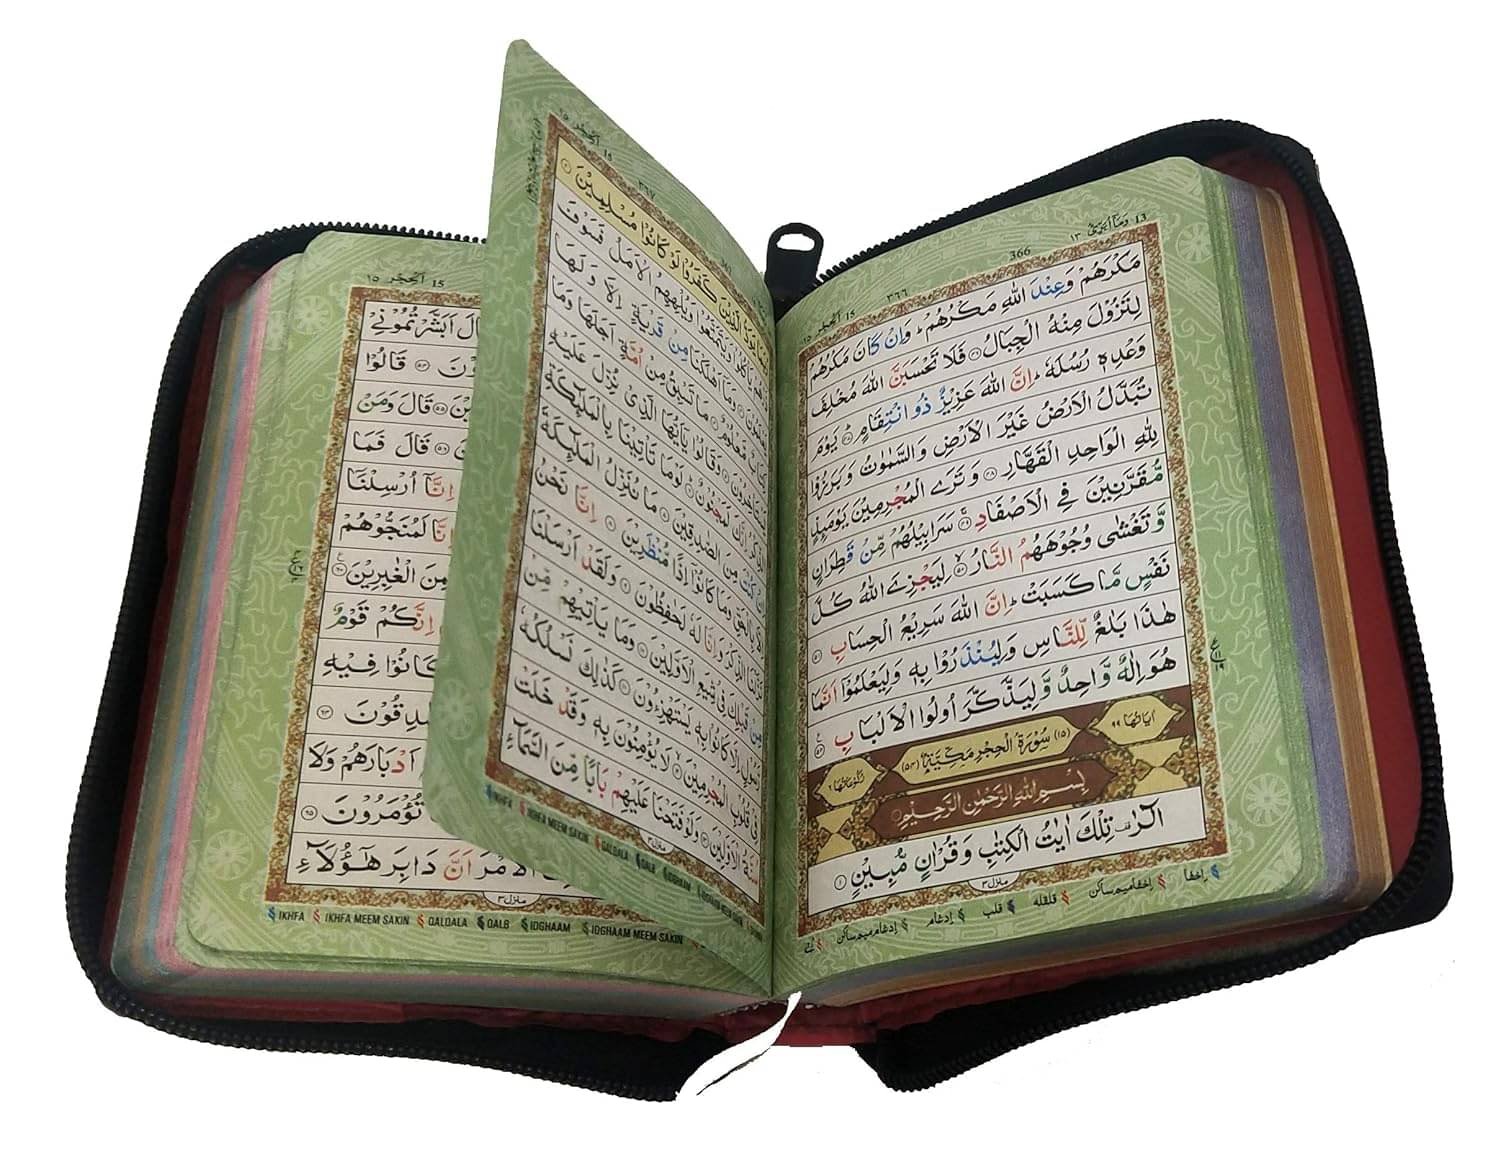 13 وَمَآ اُبَرِّئُ ١٣
366
٣٦٦
15 اَلْحِجْر ١٥
مَكْرَهُمْ وَعِنْدَ اللّٰهِ مَكْرُهُمْ ؕ وَاِنْ كَانَ مَكْرُهُمْ
لِتَزُوْلَ مِنْهُ الْجِبَالُ ۝٤٦ فَلَا تَحْسَبَنَّ اللّٰهَ مُخْلِفَ
وَعْدِهٖ رُسُلَهٗ ؕ اِنَّ اللّٰهَ عَزِيْزٌ ذُو انْتِقَامٍ ۝٤٧ يَوْمَ
تُبَدَّلُ الْاَرْضُ غَيْرَ الْاَرْضِ وَالسَّمٰوٰتُ وَبَرَزُوْا
لِلّٰهِ الْوَاحِدِ الْقَهَّارِ ۝٤٨ وَتَرَى الْمُجْرِمِيْنَ يَوْمَىِٕذٍ
مُّقَرَّنِيْنَ فِي الْاَصْفَادِ ۝٤٩ سَرَابِيْلُهُمْ مِّنْ قَطِرَانٍ
وَّتَغْشٰى وُجُوْهَهُمُ النَّارُ ۝٥٠ لِيَجْزِيَ اللّٰهُ كُلَّ
نَفْسٍ مَّا كَسَبَتْ ؕ اِنَّ اللّٰهَ سَرِيْعُ الْحِسَابِ ۝٥١
هٰذَا بَلٰغٌ لِّلنَّاسِ وَلِيُنْذَرُوْا بِهٖ وَلِيَعْلَمُوْٓا اَنَّمَا
هُوَ اِلٰهٌ وَّاحِدٌ وَّلِيَذَّكَّرَ اُولُوا الْاَلْبَابِ ۝٥٢
اٰيَاتُهَا ٩٩
(١٥) سُوْرَةُ الْحِجْرِ مَكِّيَّةٌ (٥٤)
رُكُوْعَاتُهَا ٦
بِسْمِ اللّٰهِ الرَّحْمٰنِ الرَّحِيْمِ
الٓرٰ تِلْكَ اٰيٰتُ الْكِتٰبِ وَقُرْاٰنٍ مُّبِيْنٍ ۝١
منزل ٣
إخفا إخفا ميم ساكن قلقله قلب إدغام إدغام ميم ساكن
15 اَلْحِجْر ١٥
٣٦٧
رُبَمَا يَوَدُّ الَّذِيْنَ كَفَرُوْا لَوْ كَانُوْا مُسْلِمِيْنَ ۝٢
يَاْكُلُوْا وَيَتَمَتَّعُوْا وَيُلْهِهِمُ الْاَمَلُ فَسَوْفَ
يَعْلَمُوْنَ ۝٣ وَمَآ اَهْلَكْنَا مِنْ قَرْيَةٍ اِلَّا وَلَهَا
كِتَابٌ مَّعْلُوْمٌ ۝٤ مَا تَسْبِقُ مِنْ اُمَّةٍ اَجَلَهَا وَمَا
يَسْتَاْخِرُوْنَ ۝٥ وَقَالُوْا يٰٓاَيُّهَا الَّذِيْ نُزِّلَ عَلَيْهِ
الذِّكْرُ اِنَّكَ لَمَجْنُوْنٌ ۝٦ لَوْ مَا تَاْتِيْنَا بِالْمَلٰٓىِٕكَةِ
اِنْ كُنْتَ مِنَ الصّٰدِقِيْنَ ۝٧ مَا نُنَزِّلُ الْمَلٰٓىِٕكَةَ
اِلَّا بِالْحَقِّ وَمَا كَانُوْٓا اِذًا مُّنْظَرِيْنَ ۝٨ اِنَّا نَحْنُ
نَزَّلْنَا الذِّكْرَ وَاِنَّا لَهٗ لَحٰفِظُوْنَ ۝٩ وَلَقَدْ اَرْسَلْنَا
مِنْ قَبْلِكَ فِيْ شِيَعِ الْاَوَّلِيْنَ ۝١٠ وَمَا يَاْتِيْهِمْ مِّنْ
رَّسُوْلٍ اِلَّا كَانُوْا بِهٖ يَسْتَهْزِءُوْنَ ۝١١ كَذٰلِكَ نَسْلُكُهٗ
فِيْ قُلُوْبِ الْمُجْرِمِيْنَ ۝١٢ لَا يُؤْمِنُوْنَ بِهٖ وَقَدْ خَلَتْ
سُنَّةُ الْاَوَّلِيْنَ ۝١٣ وَلَوْ فَتَحْنَا عَلَيْهِمْ بَابًا مِّنَ السَّمَآءِ
منزل ٣
IKHFA IKHFA MEEM SAKIN QALQALA QALB IDGHAAM
15 اَلْحِجْر ١٥
قَالَ اَبَشَّرْتُمُوْنِيْ
قَالُوْا
قَالَ وَمَنْ
قَالَ فَمَا
اِنَّآ اُرْسِلْنَآ
اِنَّا لَمُنَجُّوْهُمْ
مِنَ الْغٰبِرِيْنَ ۝٦٠
اِنَّكُمْ قَوْمٌ
كَانُوْا فِيْهِ
۝٦٤
اَدْبَارَهُمْ وَلَا
تُؤْمَرُوْنَ ۝٦٥
الْاَمْرَ اَنَّ دَابِرَ هٰٓؤُلَآءِ
منزل ٣
IKHFA IKHFA MEEM SAKIN QALQALA QALB IDGHAAM IDGHAAM MEEM SAKIN